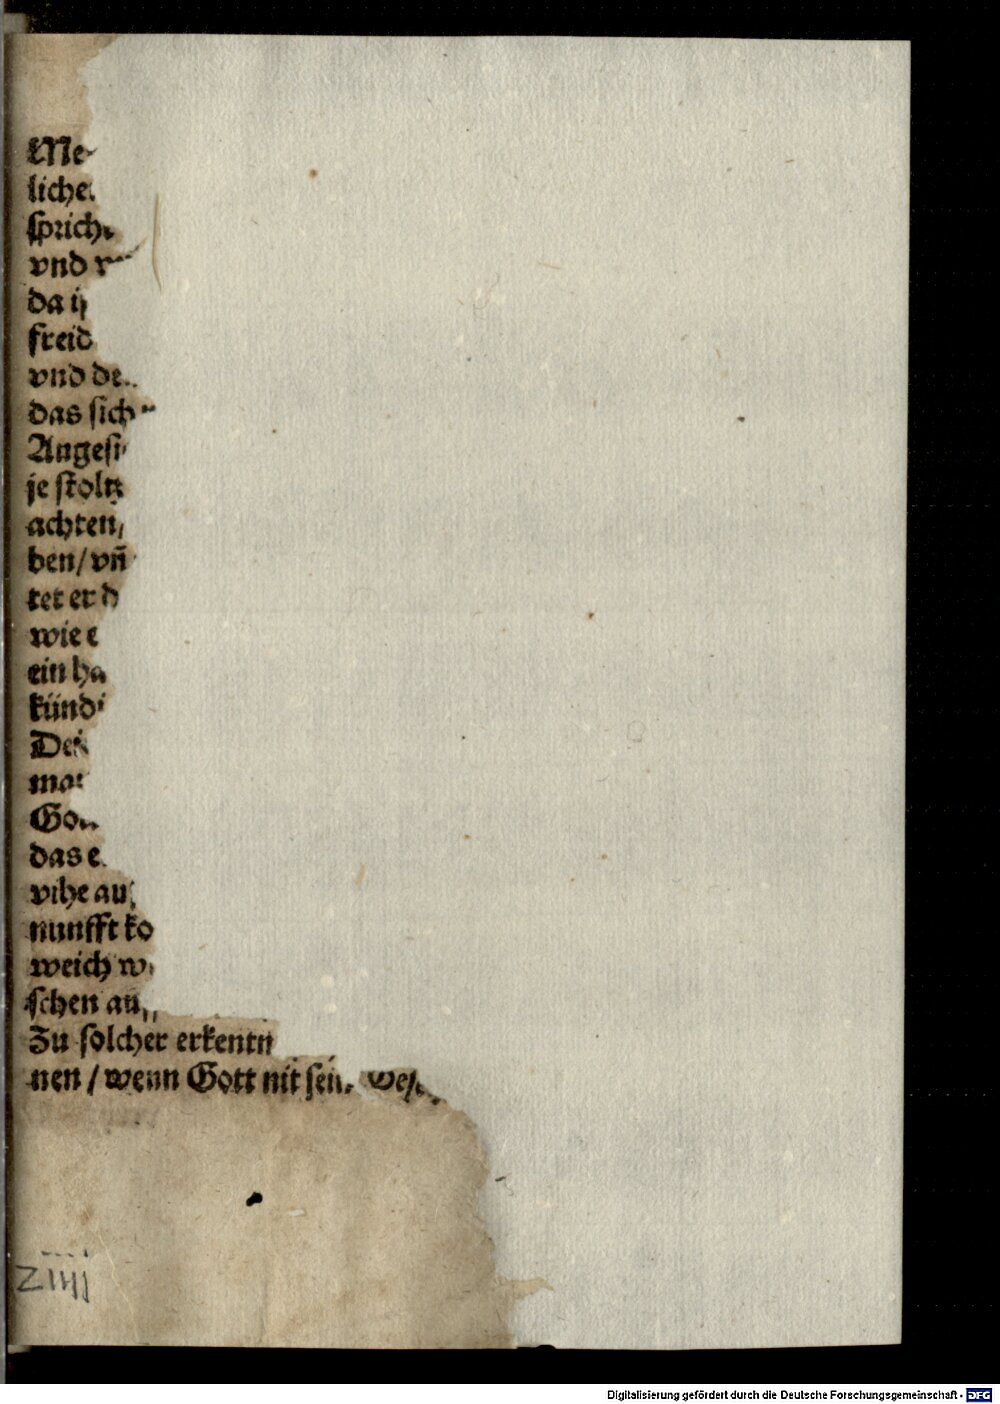 Me
liche
sprich
vnd
da
freid
vnd de
das sich
Angesi
je stoltz
achten/
ben/ vñ
tet er d
wie e
ein ha
kündi
Des
mat
Got
das e
vihe au
nunfft ko
weich w
schen auff
Zu solcher erkentn
nen / wenn Gott nit sein wese
Ziiij
Digitalisierung gefördert durch die Deutsche Forschungsgemeinschaft - DFG